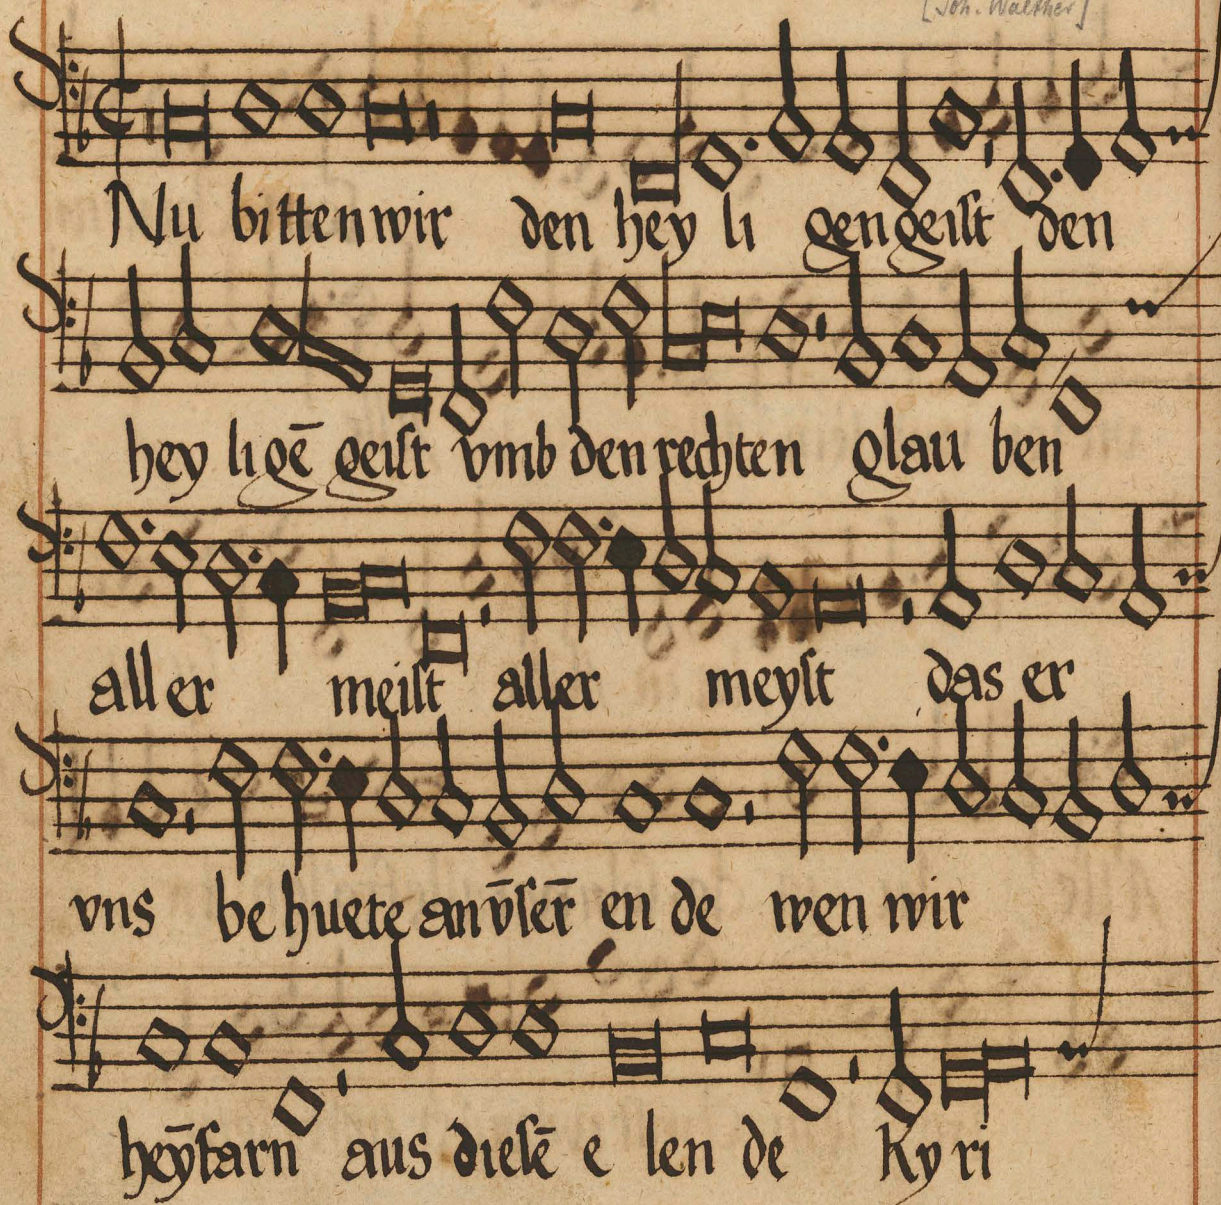 [Joh. Walther]
Nu bitten wir den hey li gen geist den
hey li gē geist vmb den rechten glau ben
aller meist aller meyst das er
vns be huete an v̄ser̄ en de wen wir
heȳfarn aus diesē e len de Kyri